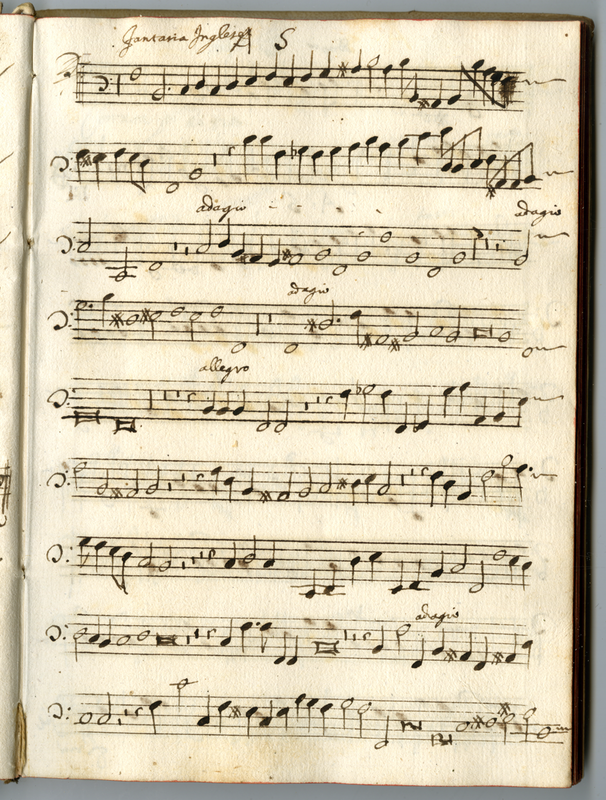 Fantasia Inglese S
adagio adagio
adagio
allegro
adagio